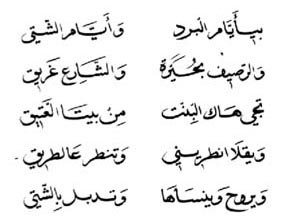 بيأيّام البرد وأيّام الشتي
والرصيف بحُيَرة والشّارع غريق
تجي هاك البِنت مِن بيتا العَتيق
ويقلّا انطريني وتنطر عالطريق
ويروح وينساها وتدبل بالشتي